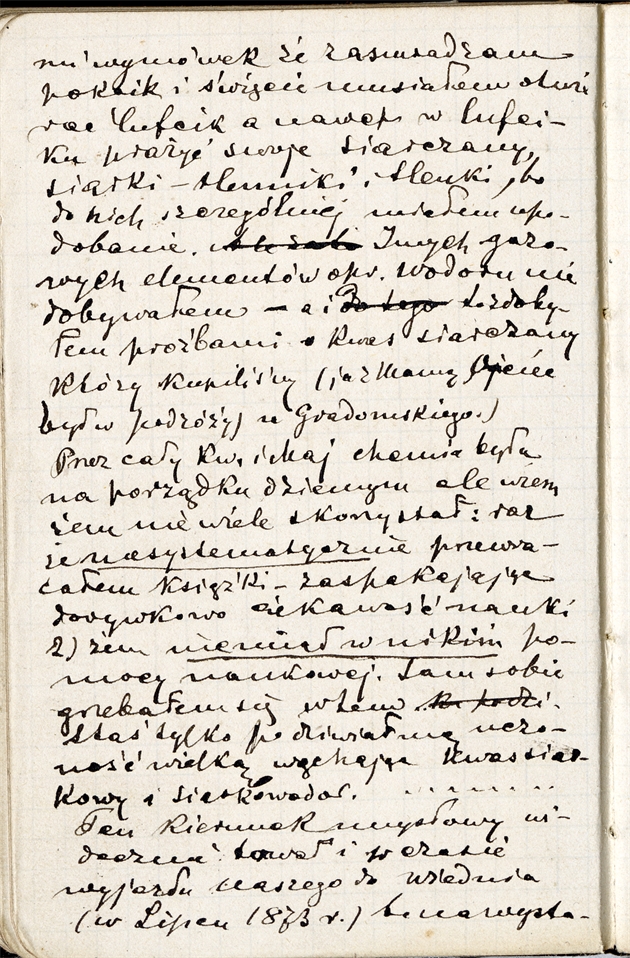 mi wymówek że zasmradzam
pokoik i święcie musiałem otwie
rać lufcik a nawet w lufci-
ku prażyć swoje siarczany,
siarki - tlenniki i tlenki, bo
do nich szczególniej miałem upo-
dobanie. Innych gazo-
wych elementów opr. wodoru nie
dobywałem - a i to zdoby-
łem prośbami kwas siarczany
który kupiliśmy (już Mamy, Ojciec
był w podróży) u Gradomskiego.)
Przez cały kw. i maj chemia była
na porządku dziennym ale wiem
żem nie wiele skorzystał: raz
że niesystematycznie przewra-
całem książki - zaspakajając
dorywkowo ciekawość nauki
2) żem nie miał w nikim po-
mocy naukowej. Sam sobie
grzebałem się w tem
Staś tylko podziwiał mą uczo-
ność wielką wąchając kwas siar-
kowy i siarkowodór. .........
Ten kierunek umysłowy wi-
doczna i w czasie
wyjazdu naszego do Wiednia
(w Lipcu 1873 r.) bo na wysta-